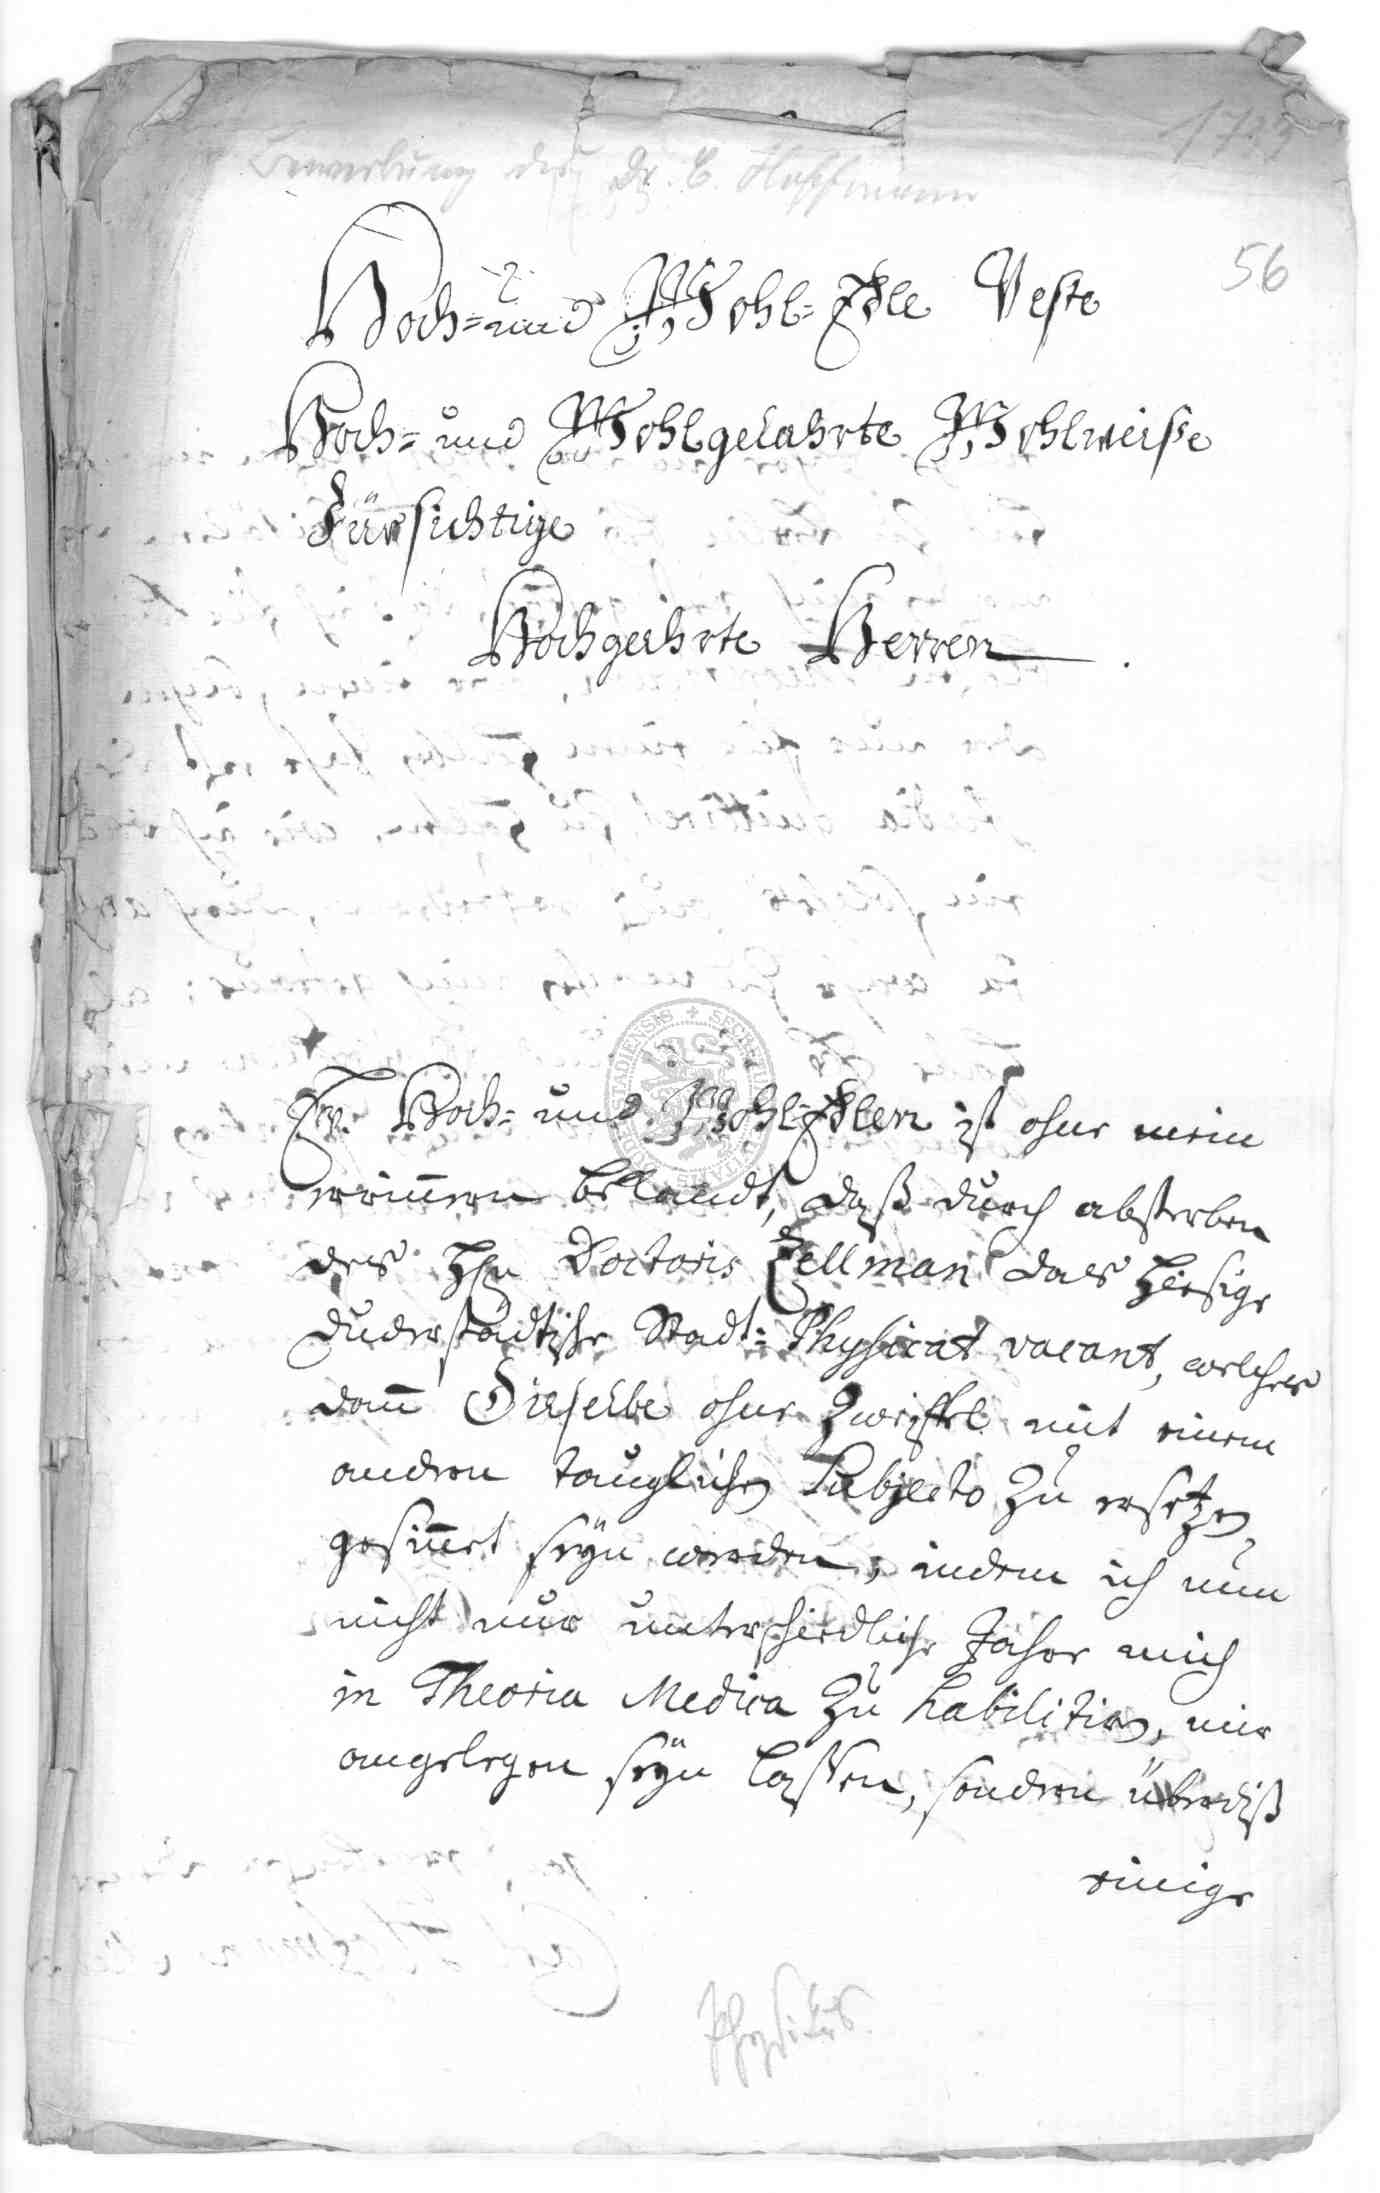 Bewerbung des Dr. C. Hoffmann
56
Hoch- und Wohl-Edle Veste
Hoch- und Wohlgelahrte Wohlweiße
Fürsichtige
Hochgeehrte Herren.
Ew. Hoch- und Wohl-Edlen ist ohne mein
erinnern bekandt, daß durch absterben
des Hrn Doctoris Zellman das hiesige
Duderstädtische Stadt-Physicat vacant, welches
dann Dieselbe ohne Zweiffel mit einem
andren tauglichen Subjecto zu ersetzen
gesinnet seÿn werden; indem ich nun
nicht nur unterschiedliche Jahre mich
in Theoria Medica zu habilitiren, mir
angelegen seÿn laßen, sondern überdiß
einige
Physikus